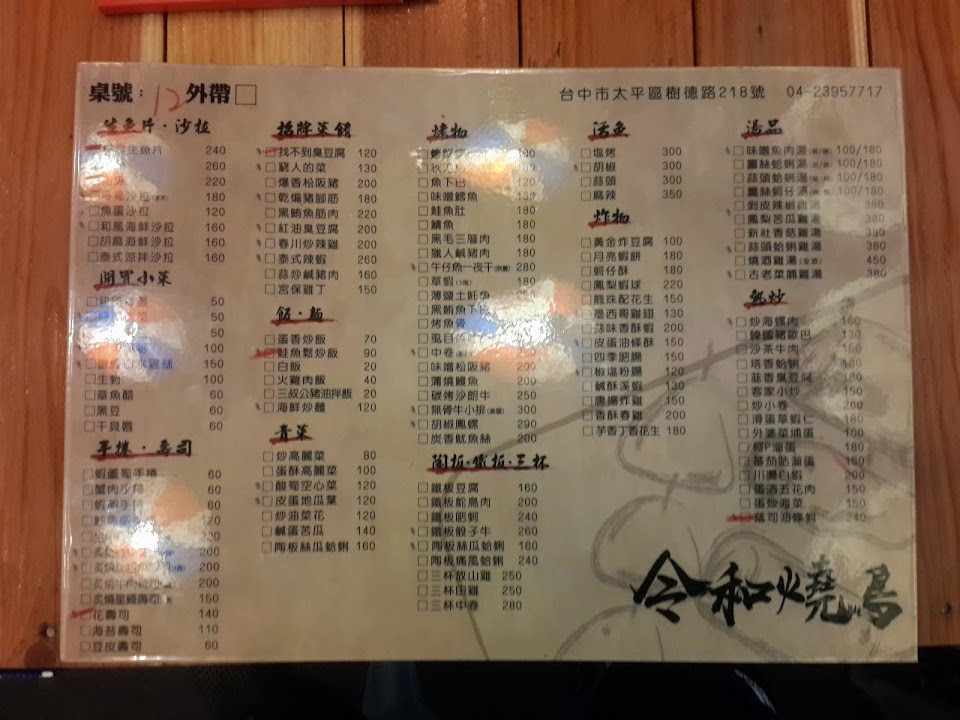 桌號: 12 外帶□
台中市太平區樹德路218號 04-23957717
生魚片·沙拉
生魚片 240
260
220
沙拉 180
魚蛋沙拉 120
和風海鮮沙拉 160
胡麻海鮮沙拉 160
泰式涼拌沙拉 160
開胃小菜
50
50
50
100
雞絲 150
生剝 100
章魚醋 60
黑豆 60
干貝唇 60
手捲·壽司
蝦蘆筍手捲 60
蟹肉沙捲 60
蝦卵手捲 60
120
200
炙燒 200
炙燒牛肉壽司 200
炙燒星鰻壽司 150
花壽司 140
海苔壽司 110
豆皮壽司 60
招牌菜餚
找不到臭豆腐 120
窮人的菜 130
爆香松阪豬 200
乾煸豬腳筋 180
黑鮪魚筋肉 220
紅油臭豆腐 200
春川炒辣雞 200
泰式辣蝦 260
蒜炒鹹豬肉 160
宮保雞丁 150
飯·麵
蛋香炒飯 70
鮭魚鬆炒飯 90
白飯 20
火雞肉飯 40
三叔公豬油拌飯 20
海鮮炒麵 120
青菜
炒高麗菜 80
蛋酥高麗菜 100
酸筍空心菜 120
皮蛋地瓜葉 120
炒油菜花 120
鹹蛋苦瓜 140
陶板絲瓜蛤蜊 160
烤物
魚下巴
味噌鱈魚 130
鮭魚肚 180
鯖魚 180
黑毛三層肉 180
獵人鹹豬肉 180
午仔魚一夜干 280
草蝦 180
薄鹽土魠魚
黑鮪魚下巴
烤魚骨
風目
中卷 200
味噌松阪豬 200
蒲燒鰻魚 200
碳烤沙朗牛 250
無骨牛小排 300
胡椒鳳螺 290
炭香魷魚絲 200
陶板·鐵板·三杯
鐵板豆腐 160
鐵板鴕鳥肉 200
鐵板肥蚵 240
鐵板骰子牛 260
陶板絲瓜蛤蜊 160
陶板痛風蛤蜊 240
三杯放山雞 250
三杯田雞 250
三杯中卷 280
活魚
塩烤 300
胡椒 300
蒜頭 300
麻辣 350
炸物
黃金炸豆腐 100
月亮蝦餅 180
蚵仔酥 180
鳳梨蝦球 220
龍珠配花生 150
墨西哥雞翅 130
蒜味香酥蝦 200
皮蛋油條酥 150
四季肥腸 150
椒塩粉腸 120
鹹酥溪蝦 130
唐揚炸雞 150
香酥春雞 200
芋香丁香花生 180
湯品
味噌魚肉湯 100/180
薑絲蛤蜊湯 100/180
蒜頭蛤蜊湯 100/180
薑絲蚵仔湯 100/180
剝皮辣椒雞湯 380
鳳梨苦瓜雞湯 380
新社香菇雞湯 380
蒜頭蛤蜊雞湯 380
燒酒雞湯 450
古老菜脯雞湯 380
熱炒
炒海螺肉 160
韓國豬歐巴 130
沙茶牛肉 150
塔香蛤蜊 180
韭香臭豆腐
客家小炒 150
炒小卷 200
滑蛋草蝦仁 180
外婆菜埔蛋 100
100
蕃茄 蛋 100
川燙白蝦 200
蛋酒五花肉 150
蛋炒海菜 150
蔭司油條蚵 240
令和燒鳥